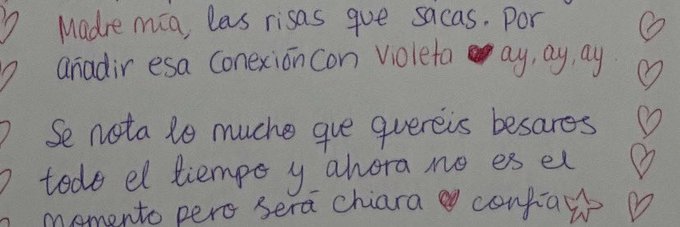 Madre mía, las risas que sacas. Por
añadir esa conexión con Violeta ♥ ay, ay, ay
Se nota lo mucho que queréis besaros
todo el tiempo y ahora no es el
momento pero será chiara ♥ confía ☆